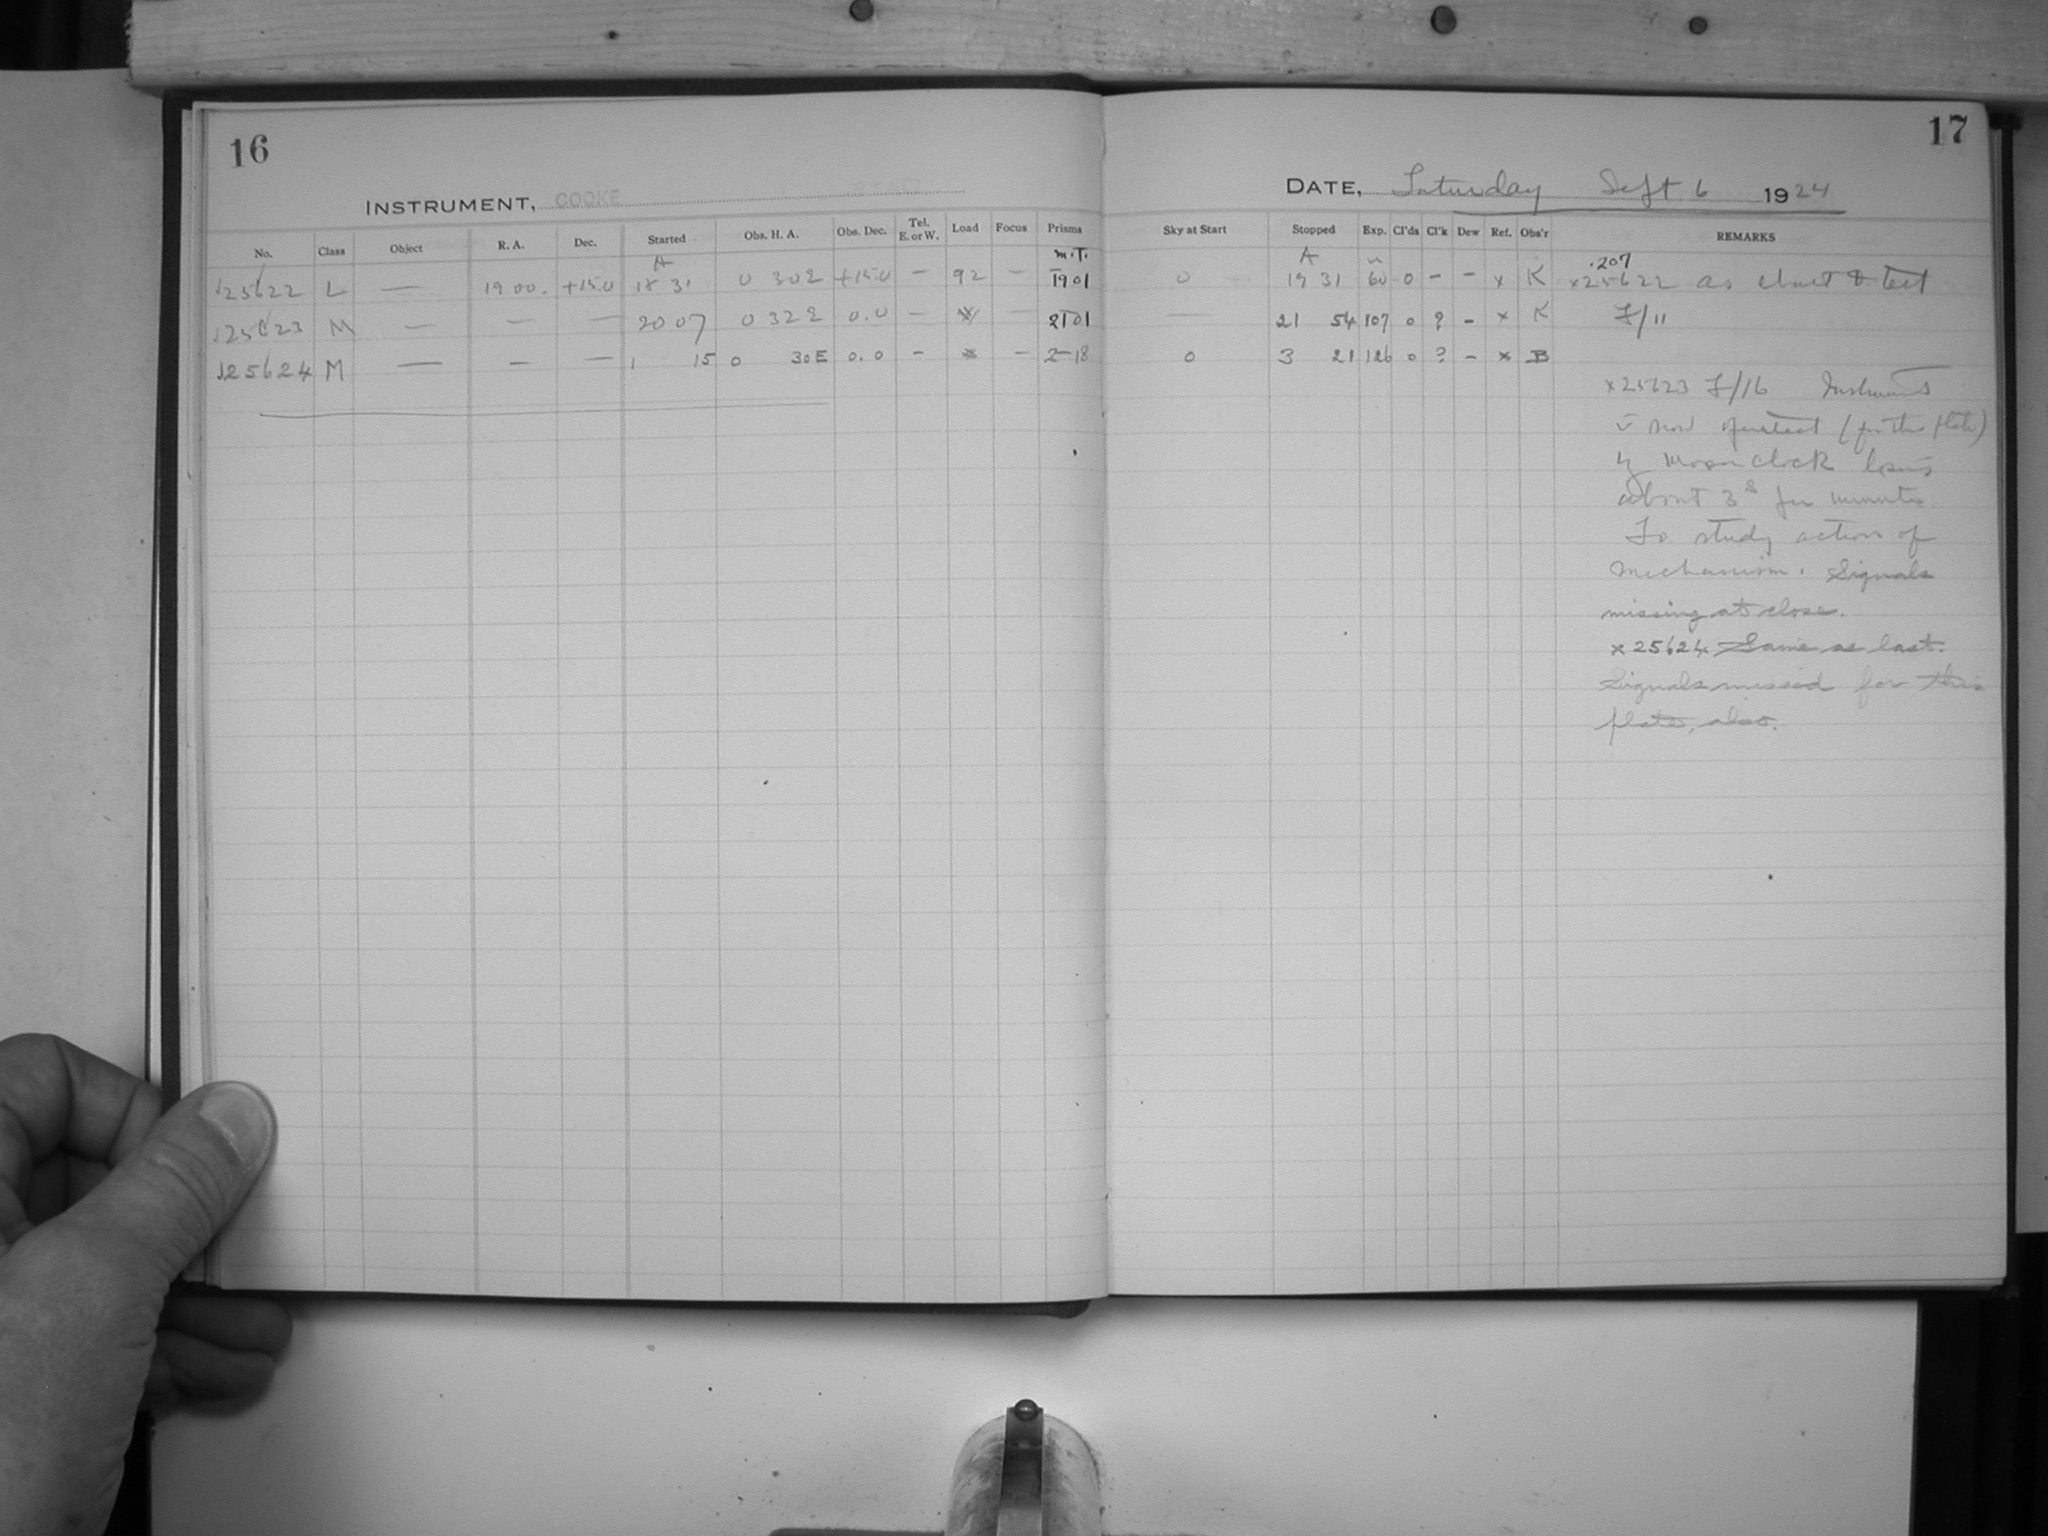 16
INSTRUMENT, COOKE
No. Class Object R. A. Dec. Started Obs. H. A. Obs. Dec. Tel. E. or W. Load Focus Prisms
M.T.
25622 L — 19 00. +15.0 18 31 0 30 +15.0 — 92 — 1901
25623 M — — — 20 07 0 32 0.0 — — 2101
25624 M — — — 1 15 0 30E 0.0 — — 2-18
17
DATE, Saturday Sept 6 1924
Sky at Start Stopped Exp. Cl'ds Cl'k Dew Ref. Obs'r REMARKS
.207
0 19 31 60 0 – – x K x25622 as chart & test
— 21 54 107 0 ? – x K F/11
0 3 21 126 0 ? – x B
x25623 F/16
now operated (for this plate)
by Moon clock losing
about 3s per minute.
To study action of
mechanism. Signals
missing at close.
x25624 Same as last.
Signals missed for this
plate, also.